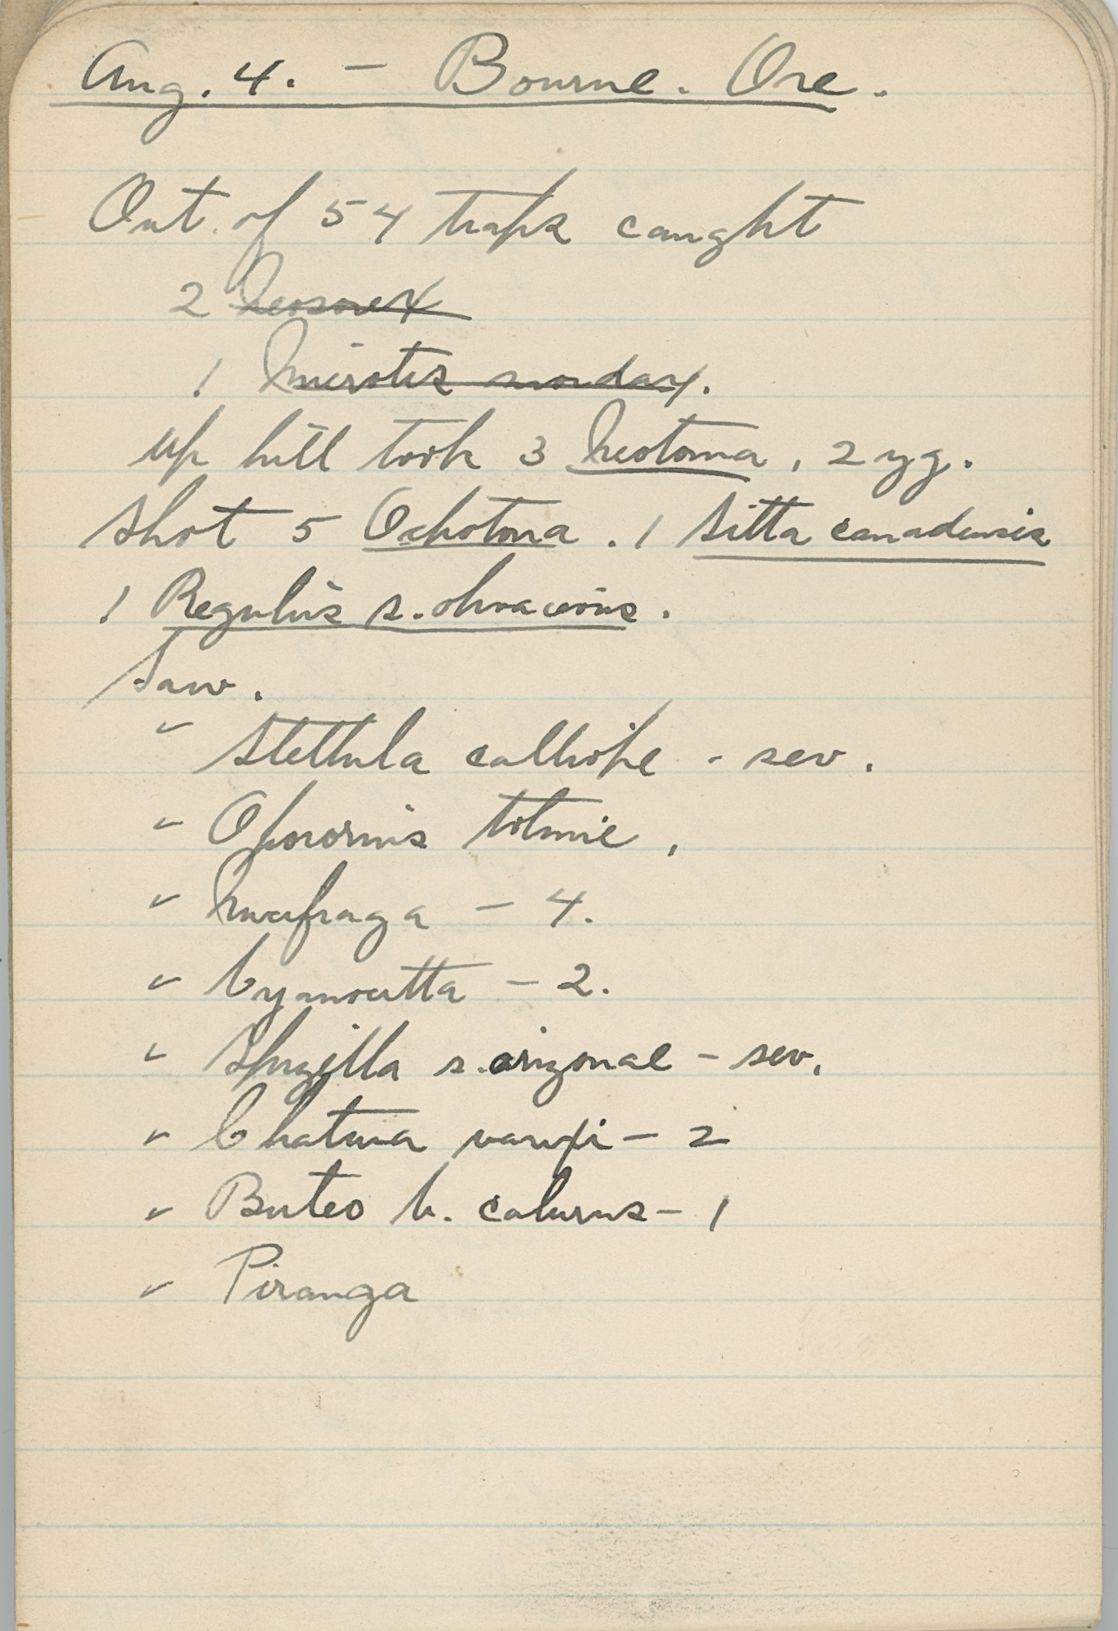 Aug. 4. – Bourne. Ore.
Out of 54 traps caught
2 Neosorex
1 Microtis mordax.
up hill took 3 Neotoma, 2 yg.
Shot 5 Ochotona. 1 Sitta canadensis
1 Regulus s. olivaceous.
Saw.
✓ Stellula calliope - sev.
✓ Oporornis tolmie,
✓ Nucifraga – 4.
✓ Cyanocitta – 2.
✓ Spizella s. arizonae – sev.
✓ Chatura vauxi – 2
✓ Buteo b. calurus – 1
✓ Piranga